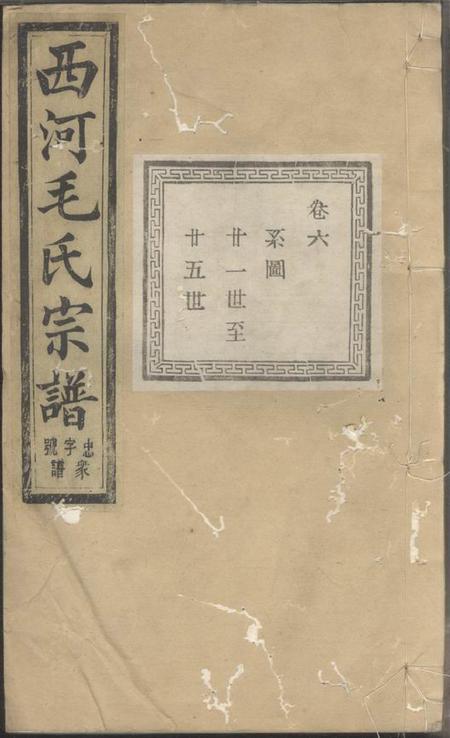 西河毛氏宗譜
忠衆
字
號譜
卷六
系圖
廿一世至
廿五世